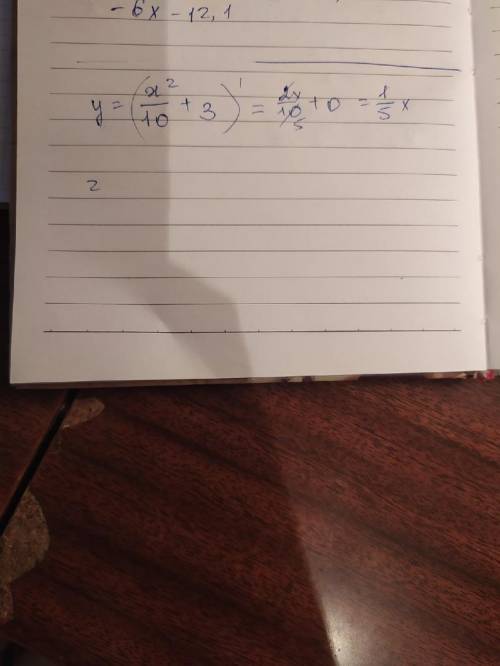 - 6x - 12,1
y = (x²/10 + 3)' = 2x/10 5 + 0 = 1/5 x
2